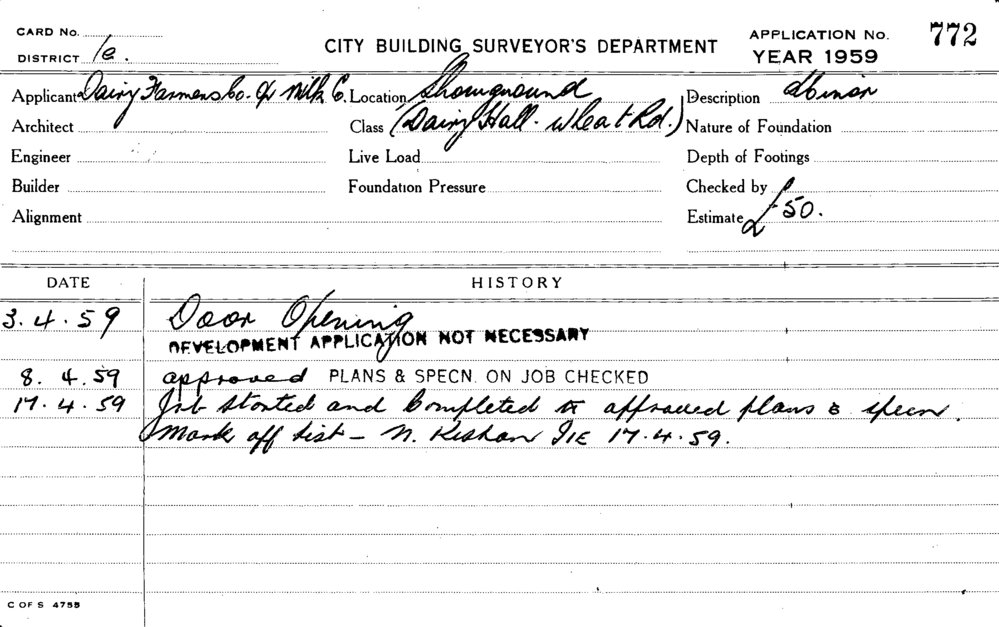 CARD No.
DISTRICT 1e.
CITY BUILDING SURVEYOR'S DEPARTMENT
APPLICATION No. 772
YEAR 1959
Applicant Dairy Farmers Co. Op Milk C. Location Showground Description Minor
Architect Class (Dairy Hall. Wheat Rd.) Nature of Foundation
Engineer Live Load Depth of Footings
Builder Foundation Pressure Checked by
Alignment Estimate £50.
DATE HISTORY
3.4.59 Door Opening
DEVELOPMENT APPLICATION NOT NECESSARY
8.4.59 approved PLANS & SPECN. ON JOB CHECKED
17.4.59 Job started and Completed to approved plans & specn.
Mark off list – N. 17.4.59.
C OF S 4755